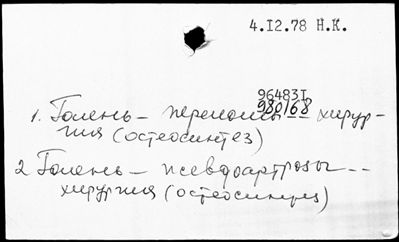 4.I2.78 Н.К.
96483I
980168
1. Голень — переломы -- хирур-
гия (остеосинтез)
2 Голень — псевдоартрозы --
хирургия (остеосинтез)